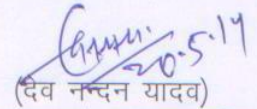 20.5.14
(देव नन्दन यादव)